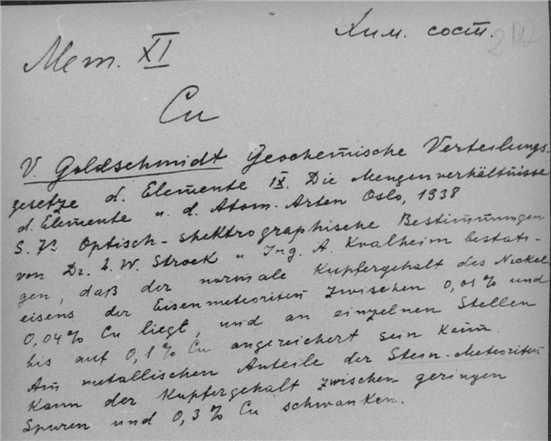 Хим. сост.
Мет. XI
Cu
V. Goldschmidt Geochemische Verteilungs-
gesetze d. Elemente IX. Die Mengenverhältnisse
d. Elemente u. d. Atom-Arten Oslo, 1938
S. 73 Optisch-spektrographische Bestimmungen
von Dr. L. W. Strock u Ing. A. Kvalheim bestäti-
gen, daß der normale Kupfergehalt des Nickel
eisens der Eisenmeteoriten zwischen 0,01% und
0,04% Cu liegt, und an einzelnen Stellen
bis auf 0,1% Cu angereichert sein kann.
Am metallischen Anteile der Stein-Meteoriten
Kann der Kupfergehalt zwischen geringen
Spuren und 0,3% Cu schwanken.